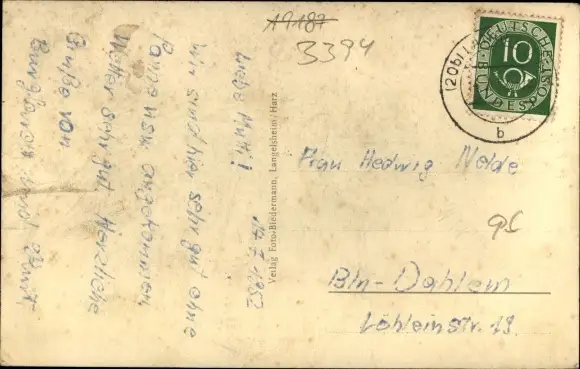 A9187
3394
(20b)
DEUTSCHE
BUNDESPOST
10
b
Liebe Mutti! 14.7.1952
Wir sind hier sehr gut ohne
Panne usw. angekommen
Wetter sehr gut. Herzliche
Grüße von
und
Verlag Foto-Biedermann, Langelsheim/Harz
Frau Hedwig Nolde
Bln-Dahlem
Löhleinstr. 19.